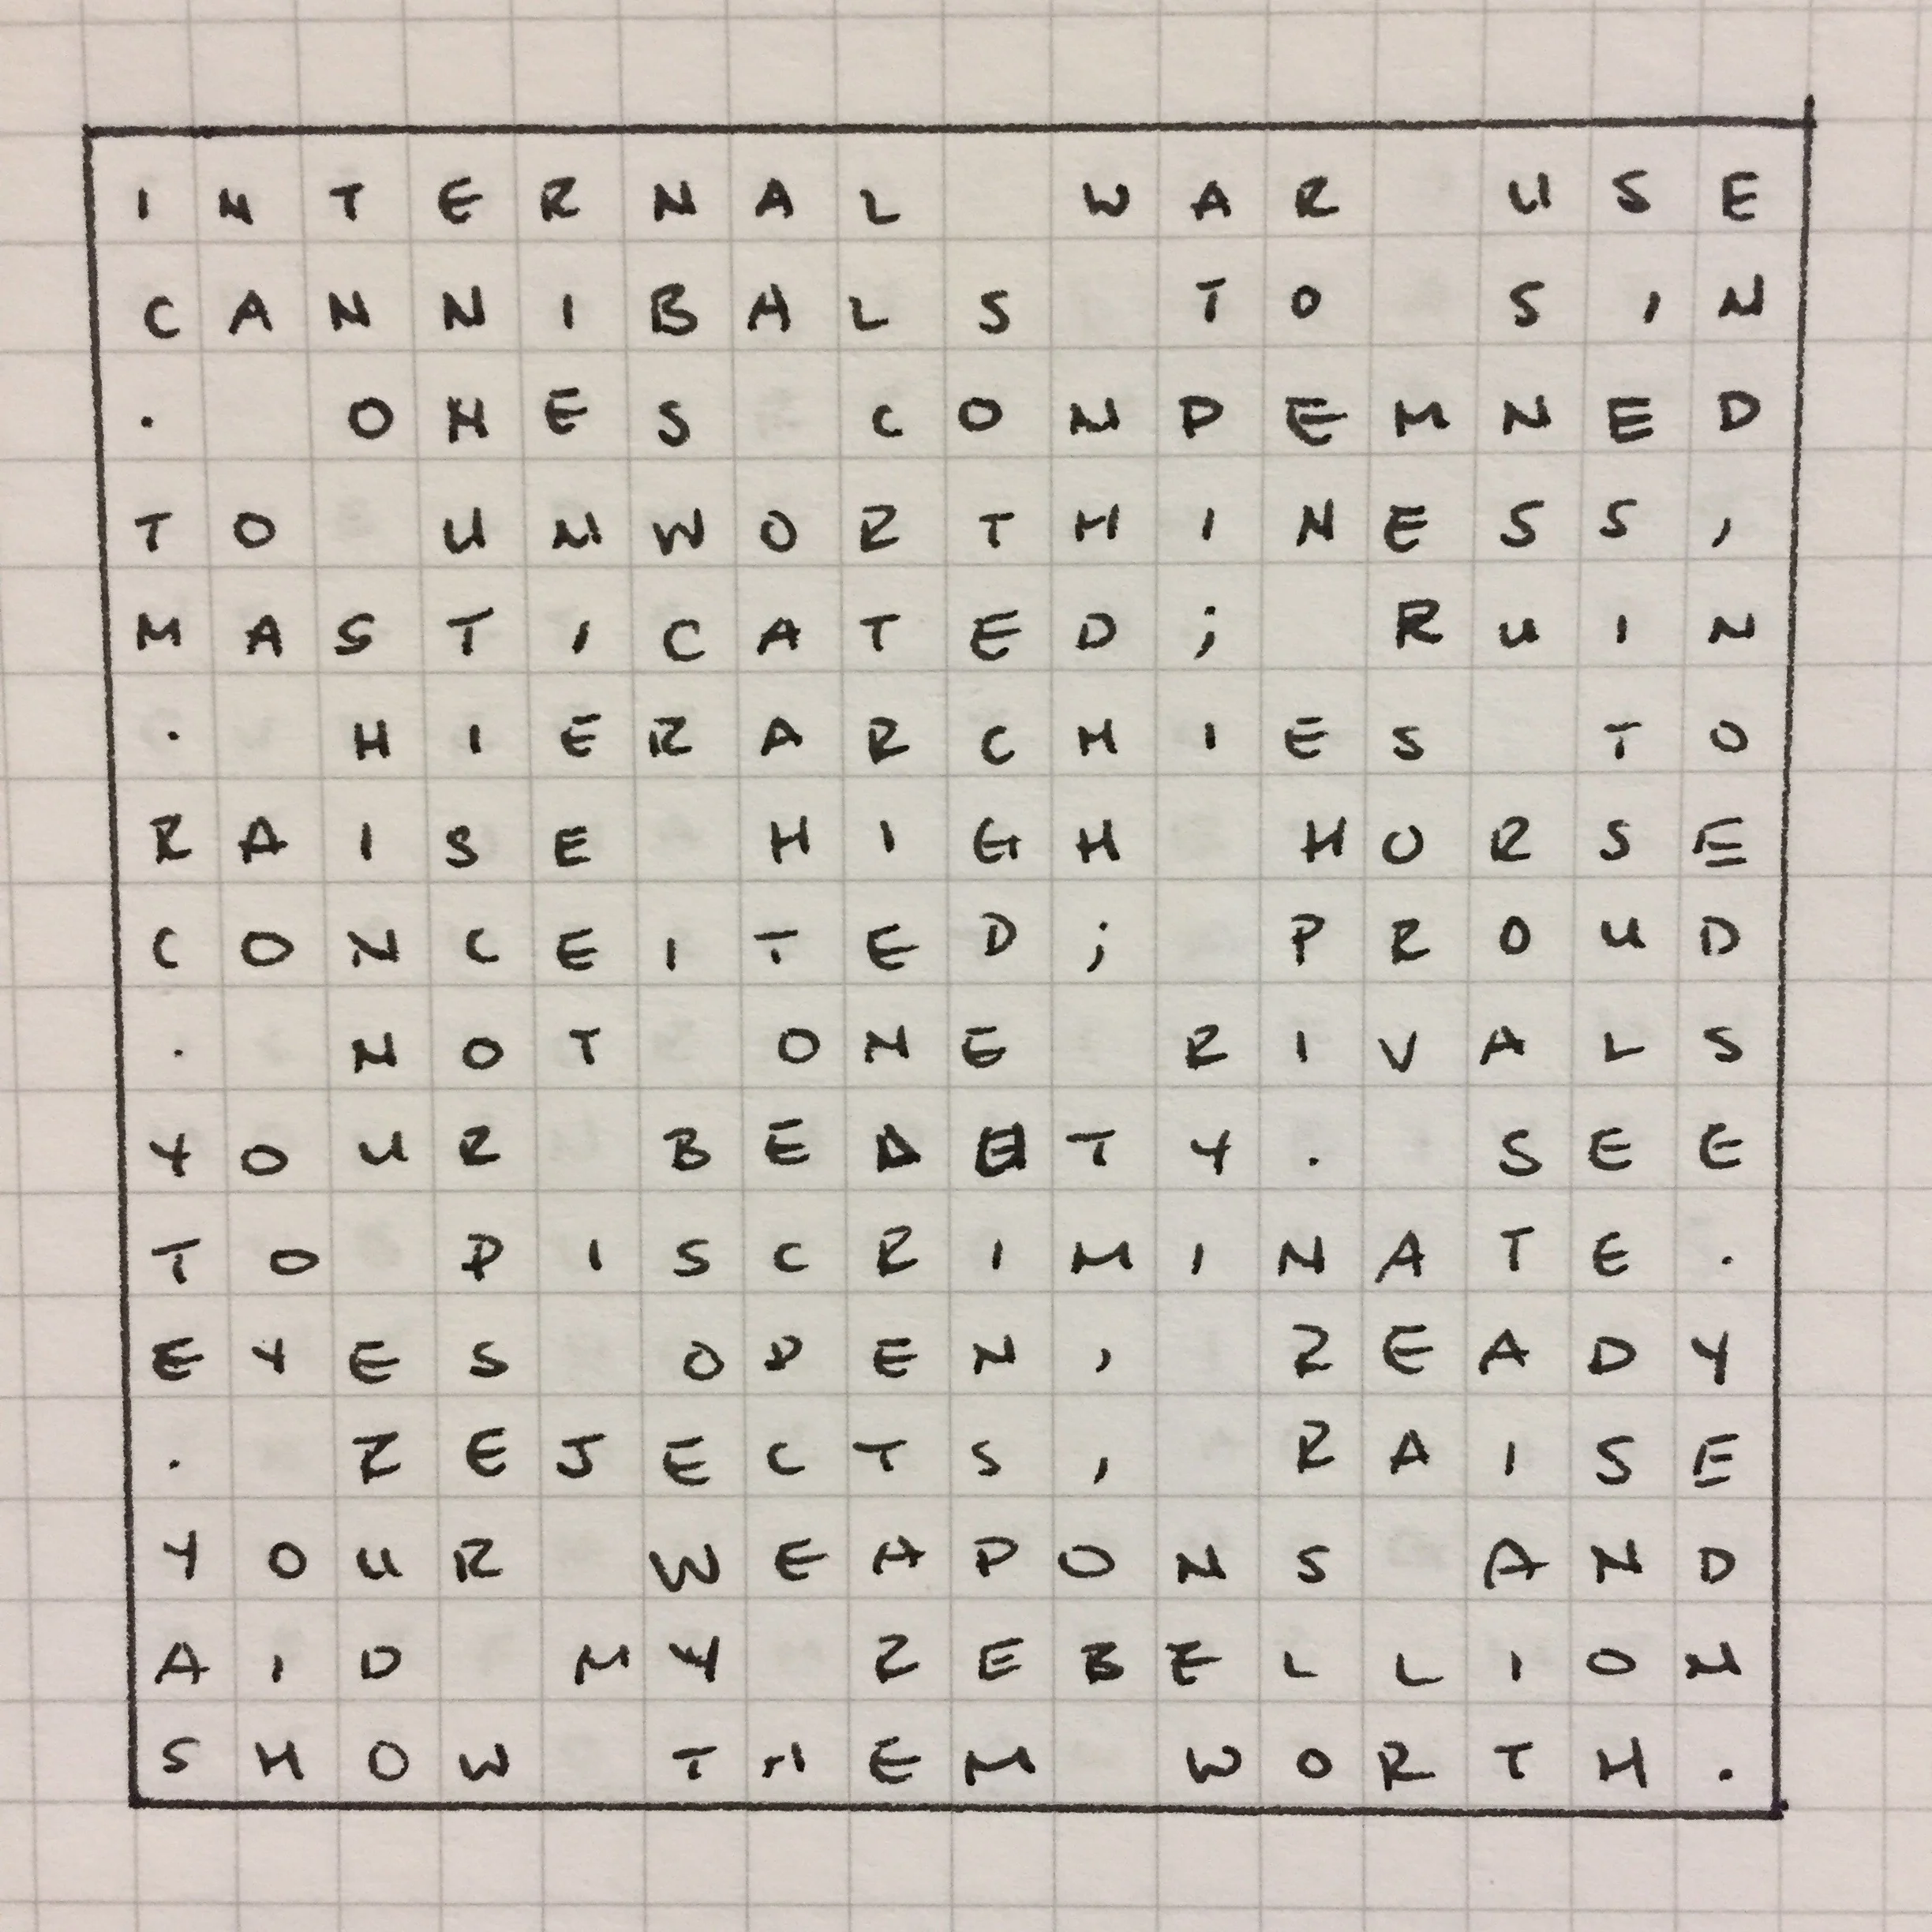 INTERNAL WAR USE
CANNIBALS TO SIN
. ONES CONDEMNED
TO UNWORTHINESS,
MASTICATED; RUIN
. HIERARCHIES TO
RAISE HIGH HORSE
CONCEITED; PROUD
. NOT ONE RIVALS
YOUR BEAUTY. SEE
TO DISCRIMINATE.
EYES OPEN, READY
. REJECTS, RAISE
YOUR WEAPONS AND
AID MY REBELLION
SHOW THEM WORTH.